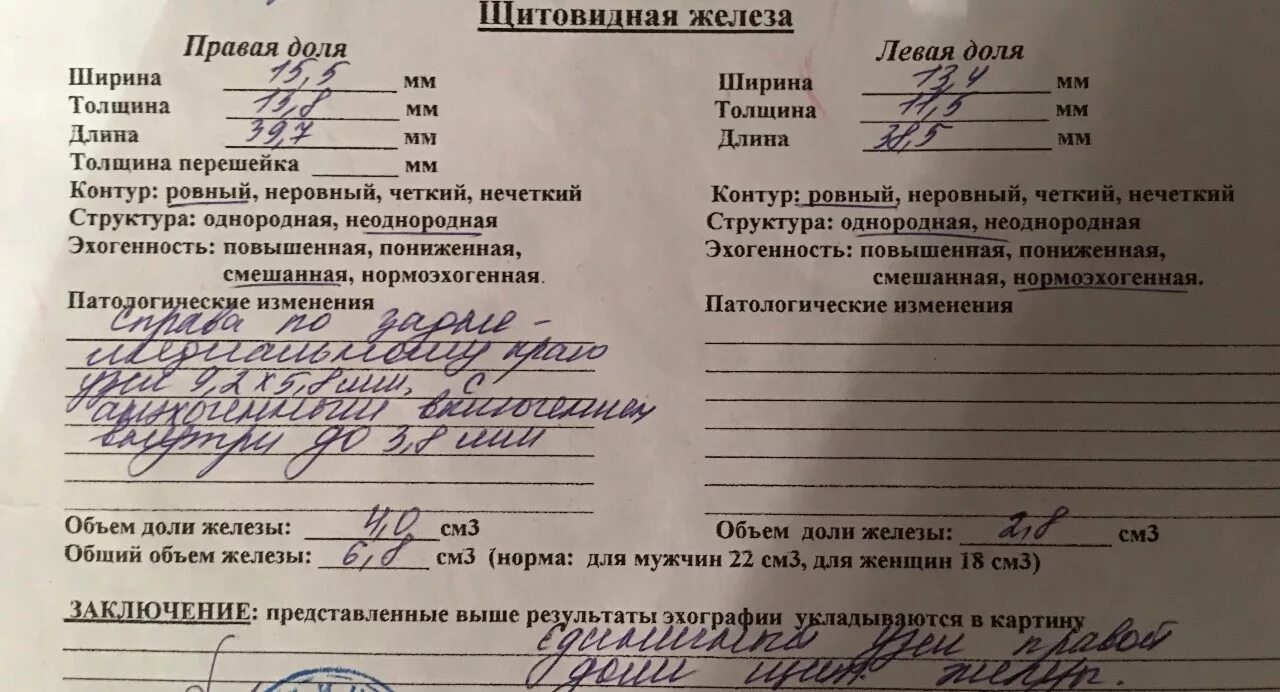 Щитовидная железа
Правая доля Левая доля
Ширина 15,5 мм Ширина 13,4 мм
Толщина 13,8 мм Толщина 11,5 мм
Длина 39,7 мм Длина 38,5 мм
Толщина перешейка мм
Контур: ровный, неровный, четкий, нечеткий Контур: ровный, неровный, четкий, нечеткий
Структура: однородная, неоднородная Структура: однородная, неоднородная
Эхогенность: повышенная, пониженная, Эхогенность: повышенная, пониженная,
смешанная, нормоэхогенная. смешанная, нормоэхогенная.
Патологические изменения Патологические изменения
Справа по задне-
медиальному краю
узел 9,2 х 5,8 мм, с
анэхогенным включением
внутри до 3,8 мм
Объем доли железы: 4,0 см3 Объем доли железы: 2,8 см3
Общий объем железы: 6,8 см3 (норма: для мужчин 22 см3, для женщин 18 см3)
ЗАКЛЮЧЕНИЕ: представленные выше результаты эхографии укладываются в картину
узел правой
доли щит. железы.